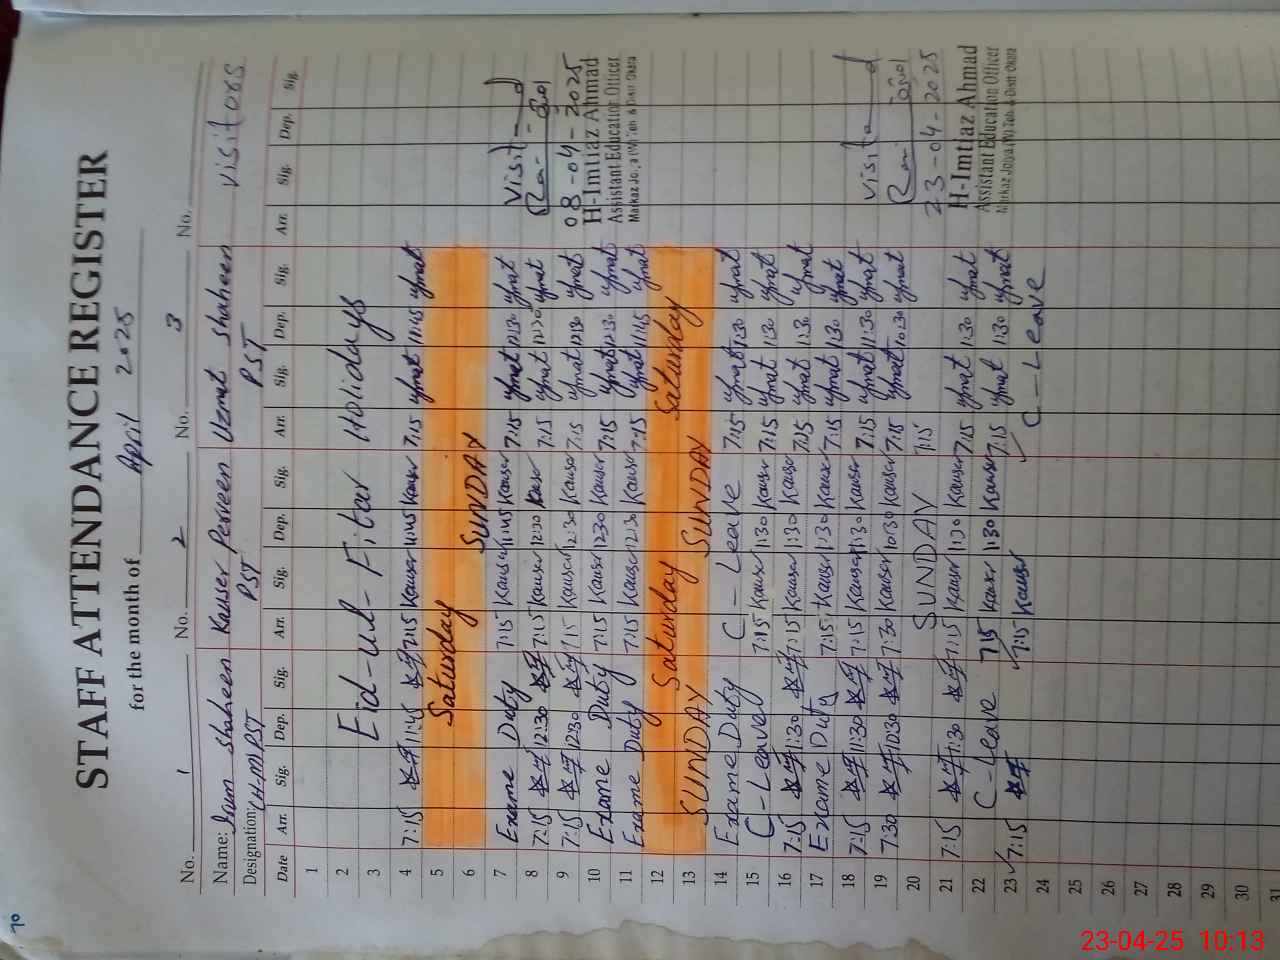 70
STAFF ATTENDANCE REGISTER
for the month of April 2025
No. 1 No. 2 No. 3 No.
Name: Shaheen Kauser Perveen Uzmat Shaheen Visitors
Designation: PST PST
Date Arr. Sig. Dep. Sig. Arr. Sig. Dep. Sig. Arr. Sig. Dep. Sig. Arr. Sig. Dep. Sig.
1
2 Eid-ul-Fitar Holidays
3
4 7:15 11:45 7:15 Kauser 11:45 Kauser 7:15 11:45
5 Saturday
6 SUNDAY
7 Exame Duty 7:15 Kauser 11:45 Kauser 7:15 12:30 Visit
8 7:15 12:30 7:15 Kauser 12:30 Kauser 7:15 12:30
9 7:15 12:30 7:15 Kauser 12:30 Kauser 7:15 12:30 08-04-2025
10 Exame Duty 7:15 Kauser 12:30 Kauser 7:15 12:30 H-Imtiaz Ahmad
11 Exame Duty 7:15 Kauser 12:30 Kauser 7:15 11:45 Assistant Education Officer
12 Saturday Saturday
13 SUNDAY SUNDAY
14 Exame Duty C-Leave 7:15 1:30
15 C-Leave 7:15 Kauser 1:30 Kauser 7:15 1:30
16 7:15 1:30 7:15 Kauser 1:30 Kauser 7:15 1:30
17 Exame Duty 7:15 Kauser 1:30 Kauser 7:15 1:30
18 7:15 11:30 7:15 Kauser 11:30 Kauser 7:15 11:30 Visit
19 7:30 10:30 7:30 Kauser 10:30 Kauser 7:15 10:30
20 SUNDAY 7:15
21 7:15 1:30 7:15 Kauser 1:30 Kauser 7:15 1:30 23-04-2025
22 C-Leave 7:15 Kauser 1:30 Kauser 7:15 1:30 H-Imtiaz Ahmad
23 7:15 7:15 Kauser C-Leave Assistant Education Officer
24
25
26
27
28
29
30
31
23-04-25 10:13